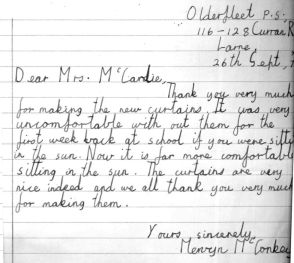 Olderfleet P.S.
116-128 Curran R
Larne,
26th Sept.
Dear Mrs. McCardie,
Thank you very much
for making the new curtains. It was very
uncomfortable with out them for the
first week back at school if you were sitting
in the sun. Now it is far more comfortable
sitting in the sun. The curtains are very
nice indeed and we all thank you very much
for making them.
Yours sincerely
Mervyn McConkey